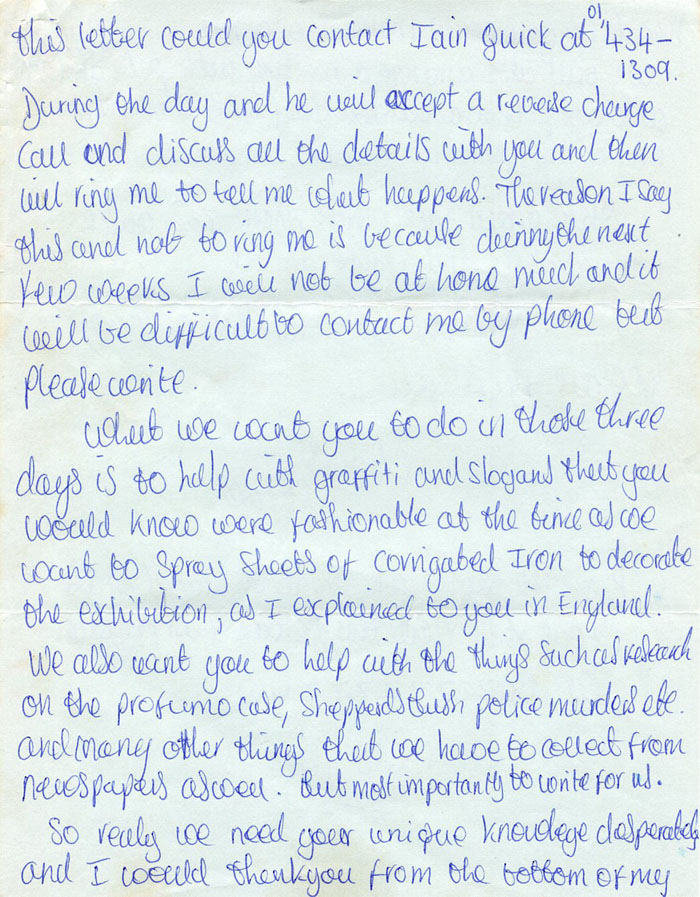 this letter could you contact Iain Quick at 01, 434-
1309.
During the day and he will accept a reverse charge
call and discuss all the details with you and then
will ring me to tell me what happens. The reason I say
this and not to ring me is because during the next
few weeks I will not be at home much and it
will be difficult to contact me by phone but
please write.
What we want you to do in those three
days is to help with graffiti and slogans that you
would know were fashionable at the time as we
want to spray sheets of Corrigated Iron to decorate
the exhibition, as I explained to you in England.
We also want you to help with the things such as research
on the profumo case, Shepperds Bush police murders etc.
and many other things that we have to collect from
newspapers as well. But most importantly to write for us.
So really we need your unique knowlege desperately
and I would thankyou from the bottom of my